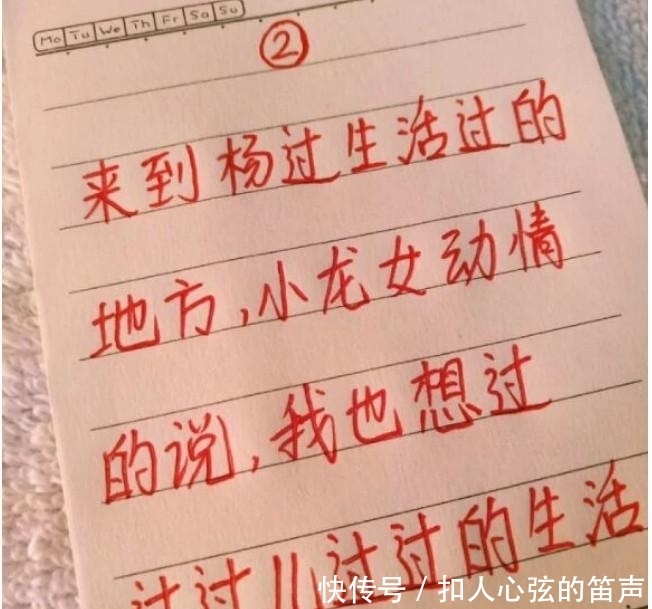 Mo Tu We Th Fr Sa Su
②
来到杨过生活过的
地方,小龙女动情
的说,我也想过
过过儿过过的生活
快传号/扣人心弦的笛声